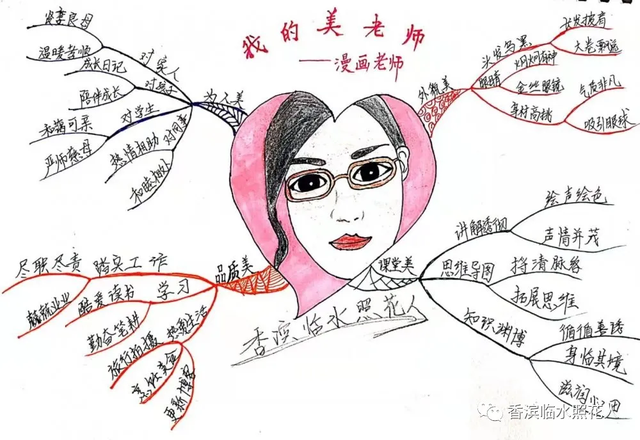 我的美老师
——漫画老师
为人美
对家人
贤妻良母
温暖苦顺
对孩子
成长日记
陪伴成长
对学生
和蔼可亲
严师慈母
对同事
热情相助
和睦相处
外貌美
头发乌黑
长发披肩
大卷飘逸
眼睛
炯炯有神
金丝眼镜
身材高挑
气质非凡
吸引眼球
品质美
踏实工作
尽职尽责
兢兢业业
学习
酷爱读书
勤奋笔耕
热爱生活
旅行拍摄
更新博客
课堂美
讲解透彻
绘声绘色
声情并茂
思维导图
捋清脉络
拓展思维
知识渊博
循循善诱
身临其境
滋润心田
香滨临水照花人
香滨临水照花